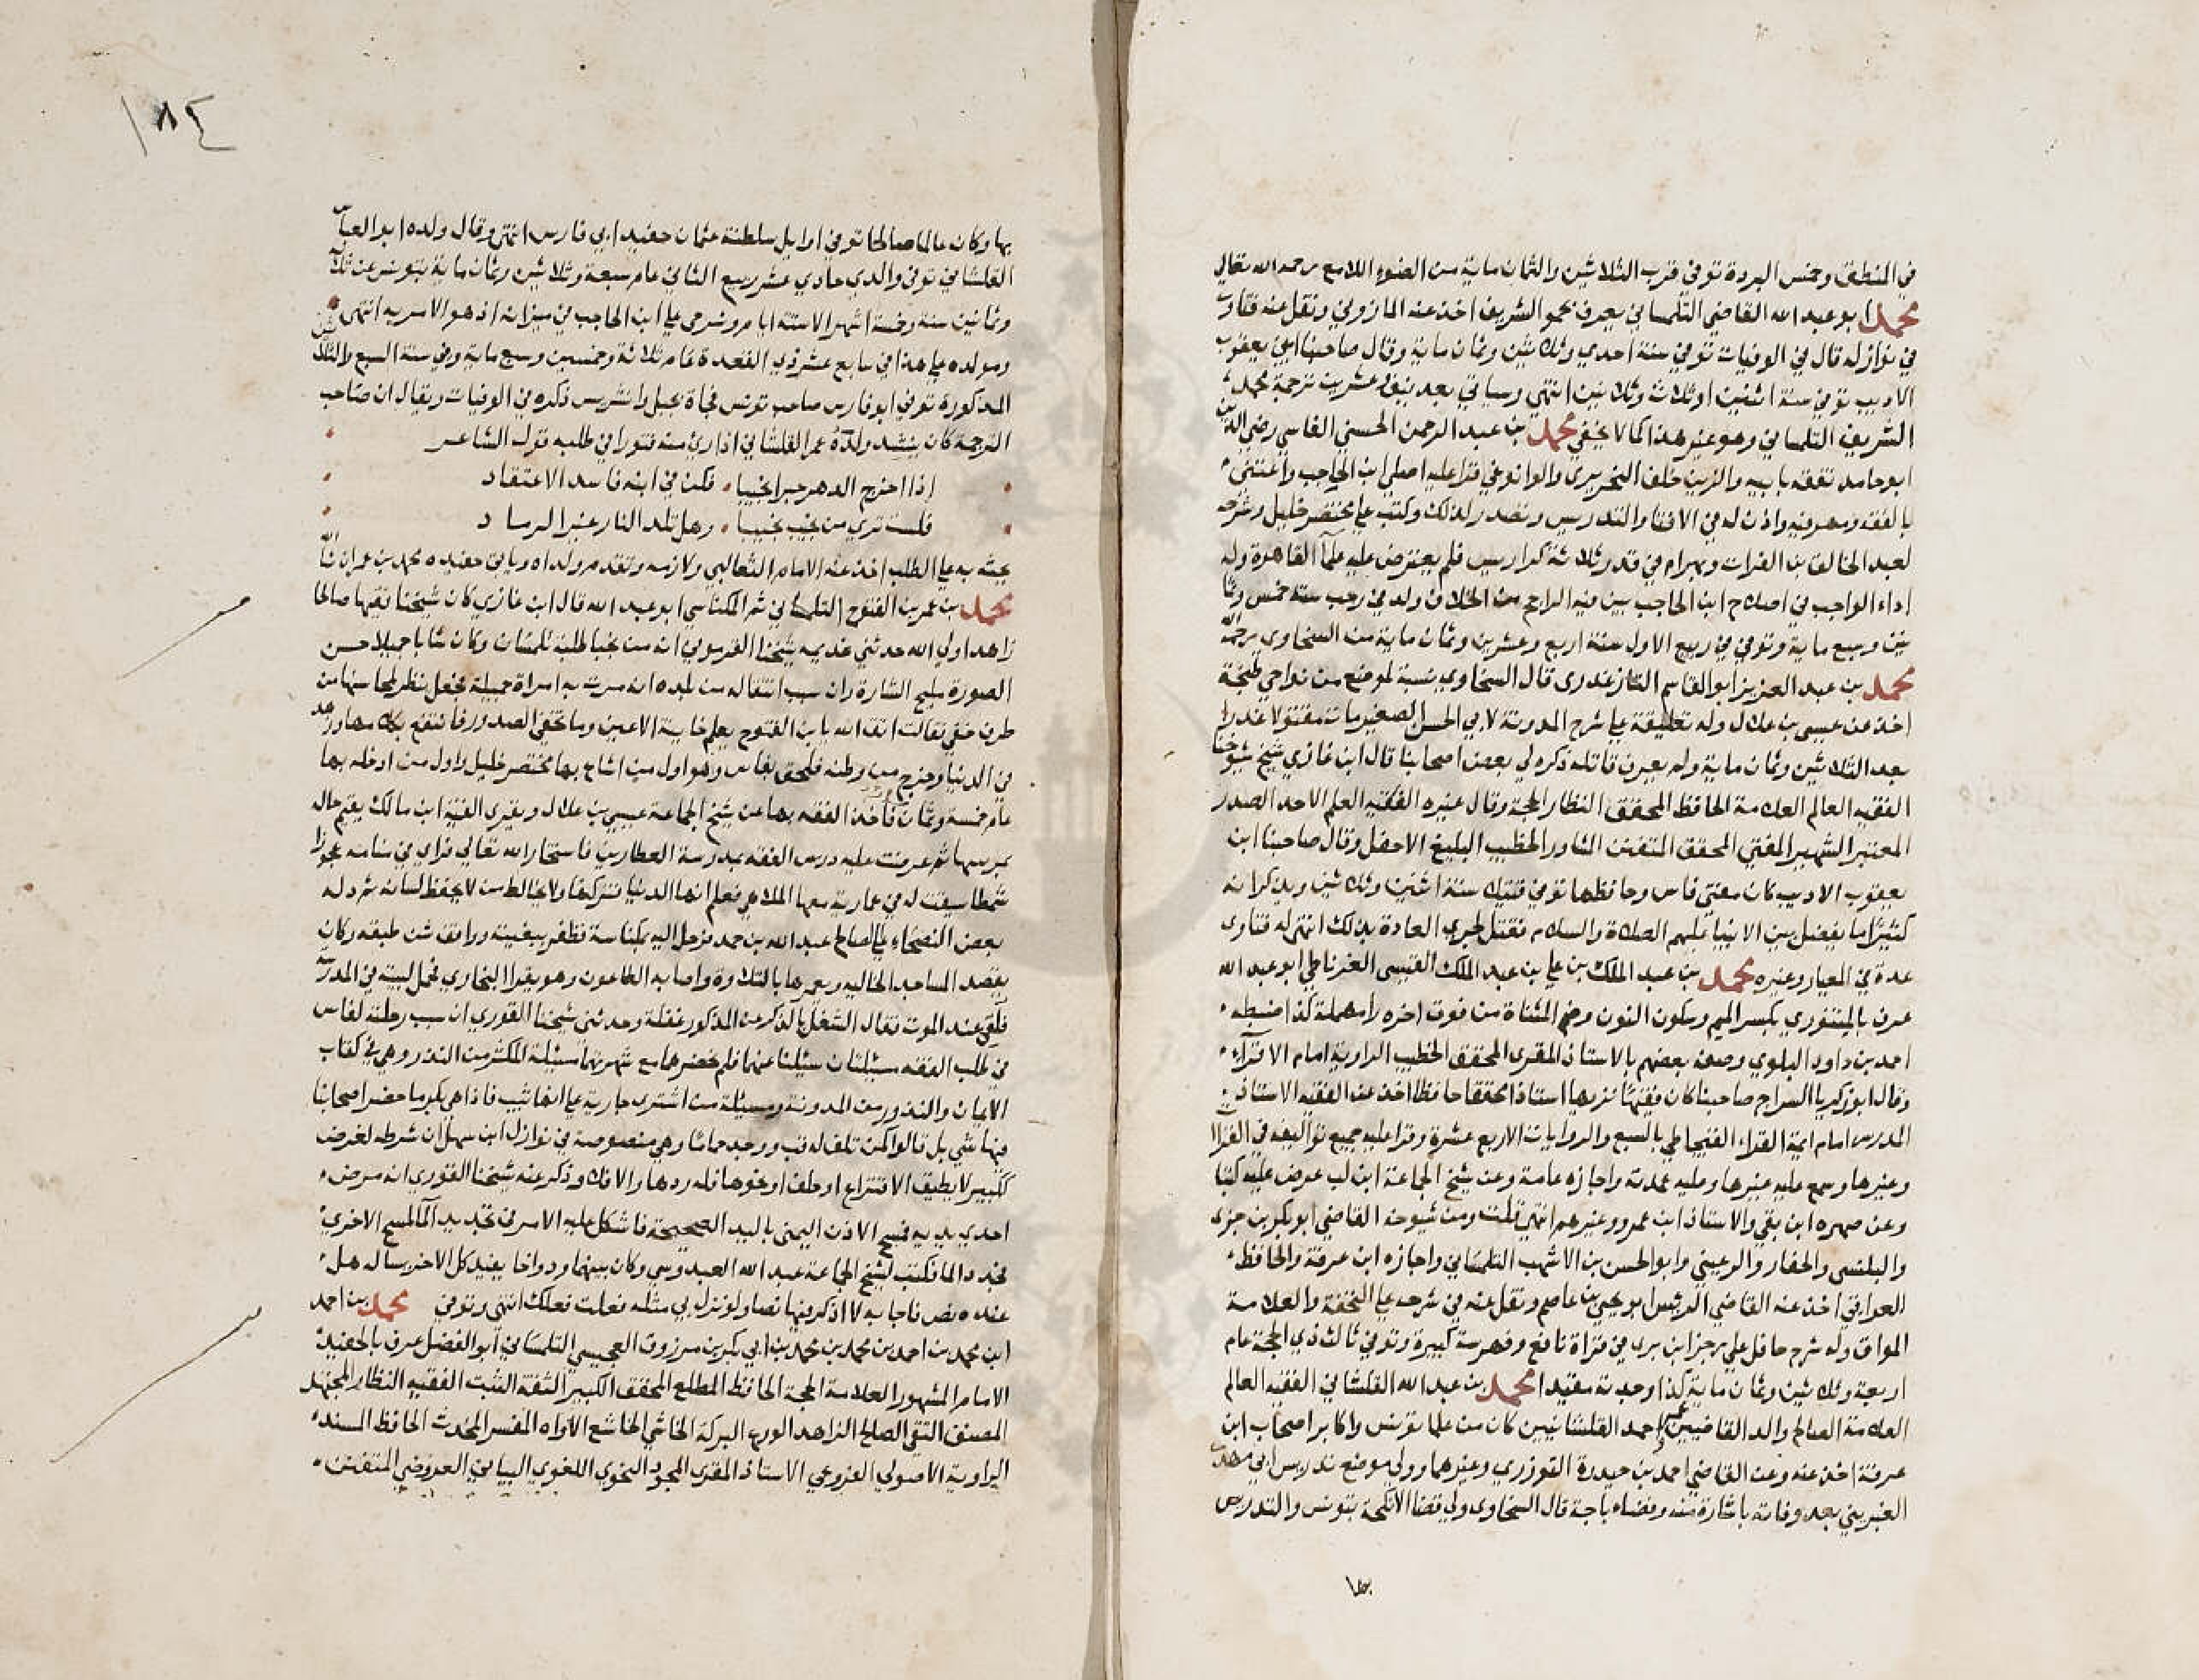 في المنطق وخمس البردة توفي قرب الثلاثين والثمان ماية من الضوء اللامع رحمه الله تعالى
محمد ابو عبد الله القاضي التلمساني يعرف بحمو الشريف اخذ عنه المازوني ونقل عنه فتاوى
في نوازله قال في الوفيات توفي سنة احدي وثلاثين وثمان ماية وقال صاحبنا ابن يعقوب
الاديب توفي سنة اثنين او ثلاث وثلاثين انتهى وسياتي بعد نيف وعشرين ترجمة محمد
الشريف التلمساني وهو غير هذا كما لا يخفي محمد بن عبد الرحمن الحسني الفاسي رضي الدين
ابو حامد تفقه بابيه والزين خلف النحريري والوانوغي قرا عليه اصلي ابن الحاجب واعتنى
بالفقه ومهر فيه واذن له في الافتا والتدريس وتصدر لذلك وكتب علي مختصر خليل وشرحه
لعبد الخالق ابن الفرات وبهرام في قدر ثلاثة كراريس فلم يعترض عليه علما القاهرة وله
اداء الواجب في اصلاح ابن الحاجب بين فيه الراجح من الخلاف ولد في رجب سنة خمس وثما
نين وسبع ماية وتوفي في ربيع الاول سنة اربع وعشرين وثمان ماية من السخاوي رحمه الله
محمد بن عبد العزيز ابو القاسم التازغدري قال السخاوي نسبة لموضع من نواحي طنجة
اخذ عن عيسي بن علال وله تعليقة علي شرح المدونة لابي الحسن الصغير مات مقتولا غدرا
بعد الثلاثين وثمان ماية ولم يعرف قاتله ذكره لي بعض اصحابنا قال ابن غازي شيخ شيوخنا
الفقيه العالم العلامة الحافظ المحقق النظار الحجة وقال غيره الفقيه العلم الاحد الصدر
المعتبر الشهير المفتي المحقق المتفنن المشاور الخطيب البليغ الاحفل وقال صاحبنا ابن
يعقوب الاديب كان مفتي فاس وحافظها توفي قتيلا سنة اثنين وثلاثين ويذكر انه
كثيرا ما يفضل بين الانبيا عليهم الصلاة والسلام فقتل لجري العادة بذلك انتهى له فتاوى
عدة في المعيار وغيره محمد بن عبد الملك بن علي بن عبد الملك القيسي الغرناطي ابو عبد الله
عرف بالمنتوري بكسر الميم وسكون النون وضم المثناة من فوق اخره را مهملة كذا ضبطه
احمد بن داود البلوي وصفه بعضهم بالاستاذ المقري المحقق الخطيب الراوية امام الاقراء
وقال ابو زكريا السراج صاحبنا كان فقيها نزيها استاذا محققا حافظا اخذ عن الفقيه الاستاذ
المدرس امام ايمة القراء القيجاطي بالسبع والروايات الاربع عشرة وقرا عليه جميع تواليفه في القرا
وغيرها وسمع عليه غيرها وعليه عمدته واجازه عامة وعن شيخ الجماعة ابن لب عرض عليه كتبا
وعن صهره ابن بقي والاستاذ ابن عمر وغيرهم انتهى قلت ومن شيوخه القاضي ابو بكر بن جزي
والبلنسي والحفار والرعيني وابو الحسن بن الاشهب التلمساني واجازه ابن عرفة والحافظ
العراقي اخذ عنه القاضي الرئيس ابو يحيى بن عاصم ونقل عنه في شرحه علي التحفة والعلامة
المواق وله شرح حافل علي رجز ابن بري في قراة نافع وفهرسة كبيرة وتوفي ثالث ذي الحجة عام
اربعة وثلاثين وثمان ماية كذا وجدته مقيدا محمد بن عبد الله القلشاني الفقيه العالم
العلامة الصالح والد القاضيين عمر واحمد القلشانيين كان من علما تونس واكابر اصحاب ابن
عرفة اخذ عنه وعن القاضي احمد بن حيدرة التوزري وغيرهما وولي موضع تدريس ابي مهدي
الغبريني بعد وفاته باشارة منه وقضاء باجة قال السخاوي ولي قضا الانكحة بتونس والتدريس
بها
١٨٤
بها وكان عالما صالحا توفي اوايل سلطنة عثمان حفيد ابي فارس انتهى وقال ولده ابو العباس
القلشاني توفي والدي حادي عشر ربيع الثاني عام سبعة وثلاثين وثمان ماية بتونس عن ثلاث
وثمانين سنة وخمسة اشهر الا ستة ايام وشرحي علي ابن الحاجب في ميزانه اذ هو الامر به انتهى
ومولده علي هذا في سابع عشر ذي القعدة عام ثلاثة وخمسين وسبع ماية وفي سنة السبع والثلاثين
المذكورة توفي ابو فارس صاحب تونس فجاة بجبل وانشريس ذكره في الوفيات ويقال ان صاحب
الترجمة كان ينشد ولده عمر القلشاني اذا راى منه فتورا في طلبه قول الشاعر
اذا اخرج الدهر حبرا نجيبا فكن في ابنه فاسد الاعتقاد
فلست ترى من نجيب نجيبا وهل تلد النار غير الرماد
يحثه به علي الطلب اخذ عنه الامام الثعالبي ولازمه وتقدم ولداه وياتي حفيده محمد بن عمر ان شا الله
محمد بن عمر بن الفتوح التلمساني ثم المكناسي ابو عبد الله قال ابن غازي كان شيخنا فقيها صالحا
زاهدا ولي الله حدثني غديمه شيخنا القوري انه من نجبا طلبة تلمسان وكان شابا جميلا حسن
الصورة مليح الشارة وان سبب انتقاله من بلده انه مرت به امراة جميلة فجعل ينظر لمحاسنها من
طرف خفي فقالت اتق الله يا بن الفتوح يعلم خاينة الاعين وما تخفي الصدور فانتفع بكلامها وزهد
في الدنيا وخرج من وطنه فلحق بفاس وهو اول من اشاع بها مختصر خليل واول من ادخله بها
عام خمسة وثمان فاخذ الفقه بها عن شيخ الجماعة عيسي بن علال ويقري الفية ابن مالك
بمرسها ثم عرضت عليه درس الفقه بمدرسة العطارين فاستخار الله تعالى فراى في منامه عجوزا
شمطا سيقت له في عمارية معها الملاهي فعلم انها الدنيا فتركها ولا يخالط من لا يحفظ لسانه ثم دله
بعض النصحاء علي الصالح عبد الله بن حمد فرحل اليه بمكناسة فظفر ببغيته ووافق شن طبقه وكان
يقصد المساجد الخالية ويعمرها بالتلاوة واصابه الطاعون وهو يقرا البخاري فحمل لبيته في المدرسة
فلقن عند الموت فقال الشغل بالذكر عن المذكور غفلة وحدثني شيخنا القوري ان سبب رحلته لفاس
في طلب الفقه مسئلتان سئل عنهما فلم يحضرها مع شهرتهما مسئلة المكثر من النذر وهي في كتاب
الايمان والنذور من المدونة ومسئلة من اشترى جارية علي انها ثيب فاذا هي بكر وما حضر اصحابنا
فيها شي بل قالوا كمن تلف له قب ووجد خاتما وهي منصوصة في نوازل ابن سهل ان شرطه لغرض
ككبير لا يطيق الافتراع او حلف او نحوها فله ردها والا فلا وذكر عنه شيخنا القوري انه مرض
احدي يديه فمسح الاذن اليمنى باليد الصحيحة فاشكل عليه الامر في تجديد الما لمسح الاخرى
فجدد الما فكتب لشيخ الجماعة عبد الله العبدوسي وكان بينهما ود واخا يفيد كل الاخر يساله هل
عنده نص فاجابه لا اذكر فيها نصا ولو نزل بي مثله فعلت فعلك انتهى وتوفي محمد بن احمد
ابن محمد بن احمد بن محمد بن محمد بن ابي بكر بن مرزوق العجيسي التلمساني ابو الفضل عرف بالحفيد
الامام المشهور العلامة الحجة الحافظ المطلع المحقق الكبير الثقة الثبت الفقيه النظار المجتهد
المصنف التقي الصالح الزاهد الورع البركة الخاشي الخاشع الاواه المفسر المحدث الحافظ المسند
الراوية الاصولي الفروعي الاستاذ المقري المجود النحوي اللغوي البياني العروضي المتفنن